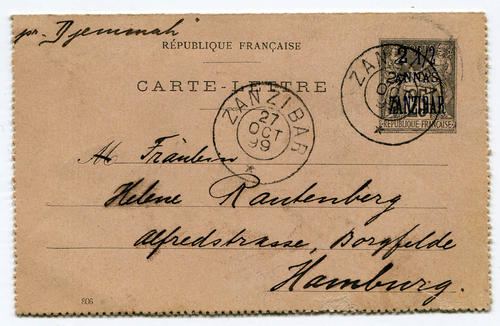 pr. "Djemmah"
RÉPUBLIQUE FRANÇAISE
CARTE-LETTRE
2 1/2
ANNAS
ZANZIBAR
RÉPUBLIQUE FRANÇAISE
ZANZIBAR
27
OCT
99
Fräulein
Helene Rautenberg
Alfredstrasse, Borgfelde
Hamburg.
806